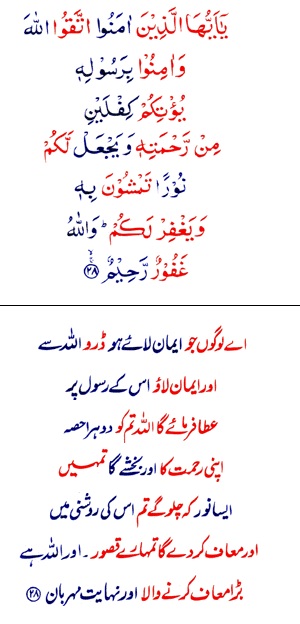 يٰۤاَيُّهَا الَّذِيْنَ اٰمَنُوا اتَّقُوا اللّٰهَ
وَاٰمِنُوْا بِرَسُوْلِهٖ
يُؤْتِكُمْ كِفْلَيْنِ
مِنْ رَّحْمَتِهٖ وَيَجْعَلْ لَّكُمْ
نُوْرًا تَمْشُوْنَ بِهٖ
وَيَغْفِرْ لَكُمْ ؕ وَاللّٰهُ
غَفُوْرٌ رَّحِيْمٌ ۙ ﴿۲۸﴾
اے لوگوں جو ایمان لائے ہو ڈرو اللہ سے
اور ایمان لاؤ اس کے رسول پر
عطا فرمائے گا اللہ تم کو دوہرا حصہ
اپنی رحمت کا اور بخشے گا تمہیں
ایسا نور کہ چلو گے تم اس کی روشنی میں
اور معاف کر دے گا تمہارے قصور ۔ اور اللہ ہے
بڑا معاف کرنے والا اور نہایت مہربان ﴿۲۸﴾